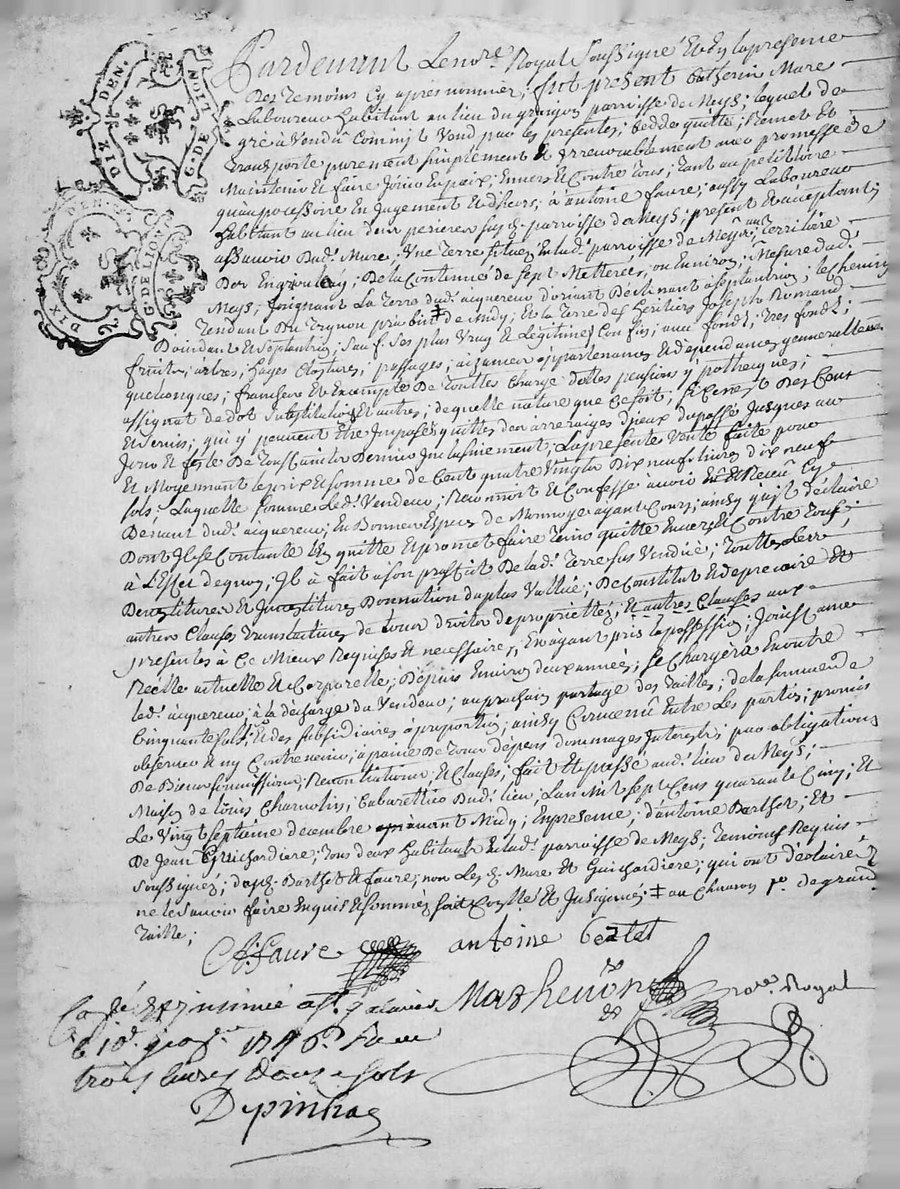 DIX DEN.
G. DE LION
DIX DEN.
G. DE LION
Pardevant Le no.re Royal Soussigné Et En la presence
Des Temoins Cy apres nommer; fut present Catherin Mure
Laboureur habitant au lieu du parroisse de Meys; lequel de
gré à Vendû Comm'il Vend par les presentes; Cedde quitte; Remet Et
transporte purement simplement & Irrevocablement avec promesse de
Maintenir Et faire Jouir En paix; Envers Et Contre Tous; tant au petitoire
qu'au pocessoire En Jugement Et dehors; à antoine faure; aussy Laboureur
habitant au lieu parroisse de Meys; present Et acceptant;
assavoir Dud. Mure; Une Terre situeé En lad. parroisse de Meys; Territoire
De la Contenue de Sept Metterées, ou Environ, Mesure dud.
Meys; Joignant La Terre dud. acquereur D'orient Declinant à Septantrion; le Chemin
Tendant De de Midy; Et la Terre des heritiers Joseph Romand
Et Septantrion; Sauf Ses plus Vray Et Legitime Confins; avec fondz, Tres fondz;
fruits, arbres, hayes Clostures; passages; aizances appartenances Et dependances generallement
quelconques; franche Et Exempte De Touttes Charge dettes pension ypotheques;
assignat de dot Substitution Et autres; de quelle nature que Ce soit, Si Ce n'est Des Cens
Et Servis; qui y peuvent Être Imposés quittes des arreraiges d'Iceux du passé Jusques au
Jour Et feste De Toussaintz Dernier Inclusivement; La presente Vente faite pour
Et Moyennant le prix Et somme de Cent quatre Vingts Dix neuf livres dix neuf
sols; Laquelle somme led. Vendeur; Reconnoit Et Confesse avoir Et Receu Cy
Devant dud. acquereur; En Bonnes Especes de Monnoye ayant Cours; ainsy qu'il declaire
Dont Il se Contante L'En quitte Et promet faire Tenir quitte Envers Et Contre Tous;
à L'Effet de quoy; Il à fait à son proffit De lad. Terre sus Vendue; Touttes
Devestiture Et Investitures Donnation du plus Vallue; De Constitut Et de precaire Et
autres Clauses translatives de tous droits de proprietté; Et autres Clauses aux
presentes à Ce Mieux Requises Et necessaire; En ayant pris la possession; Jouissance
Reelle actuelle Et Corporelle; Depuis Environ deux années; Se Chargera En outre
led. acquereur; à la decharge du Vendeur; au prochain partage des Tailles; de la somme de
Cinquante sols; Et des subsidiaires à proportion; ainsy Convenû Entre Les parties; promis
observer Et ny Contrevenir; à paine De Tous depens dommages Interestz; par obligations
De Biens soumissions; Renontiations Et Clauses; fait Et passé aud. lieu du Meys;
Maison de Louis Charnolin; Cabarettier Dud. lieu L'an Mil Sept Cens quarante Cinq; Et
Le Vingt Septieme decembre avant Midy; En presence; d'antoine Barthet; Et
De Jean Guichardiere; Tous deux habitants En lad. parroisse de Meys; Temoins Requis
Soussignez; Barthet Et faure; non Les Mure Et Guichardiere; qui ont declairé
ne le savoir faire Enquis Et sommés
Taille;
A: faure antoine
Mathevon no.re Royal
1746
trois livres Douze sols